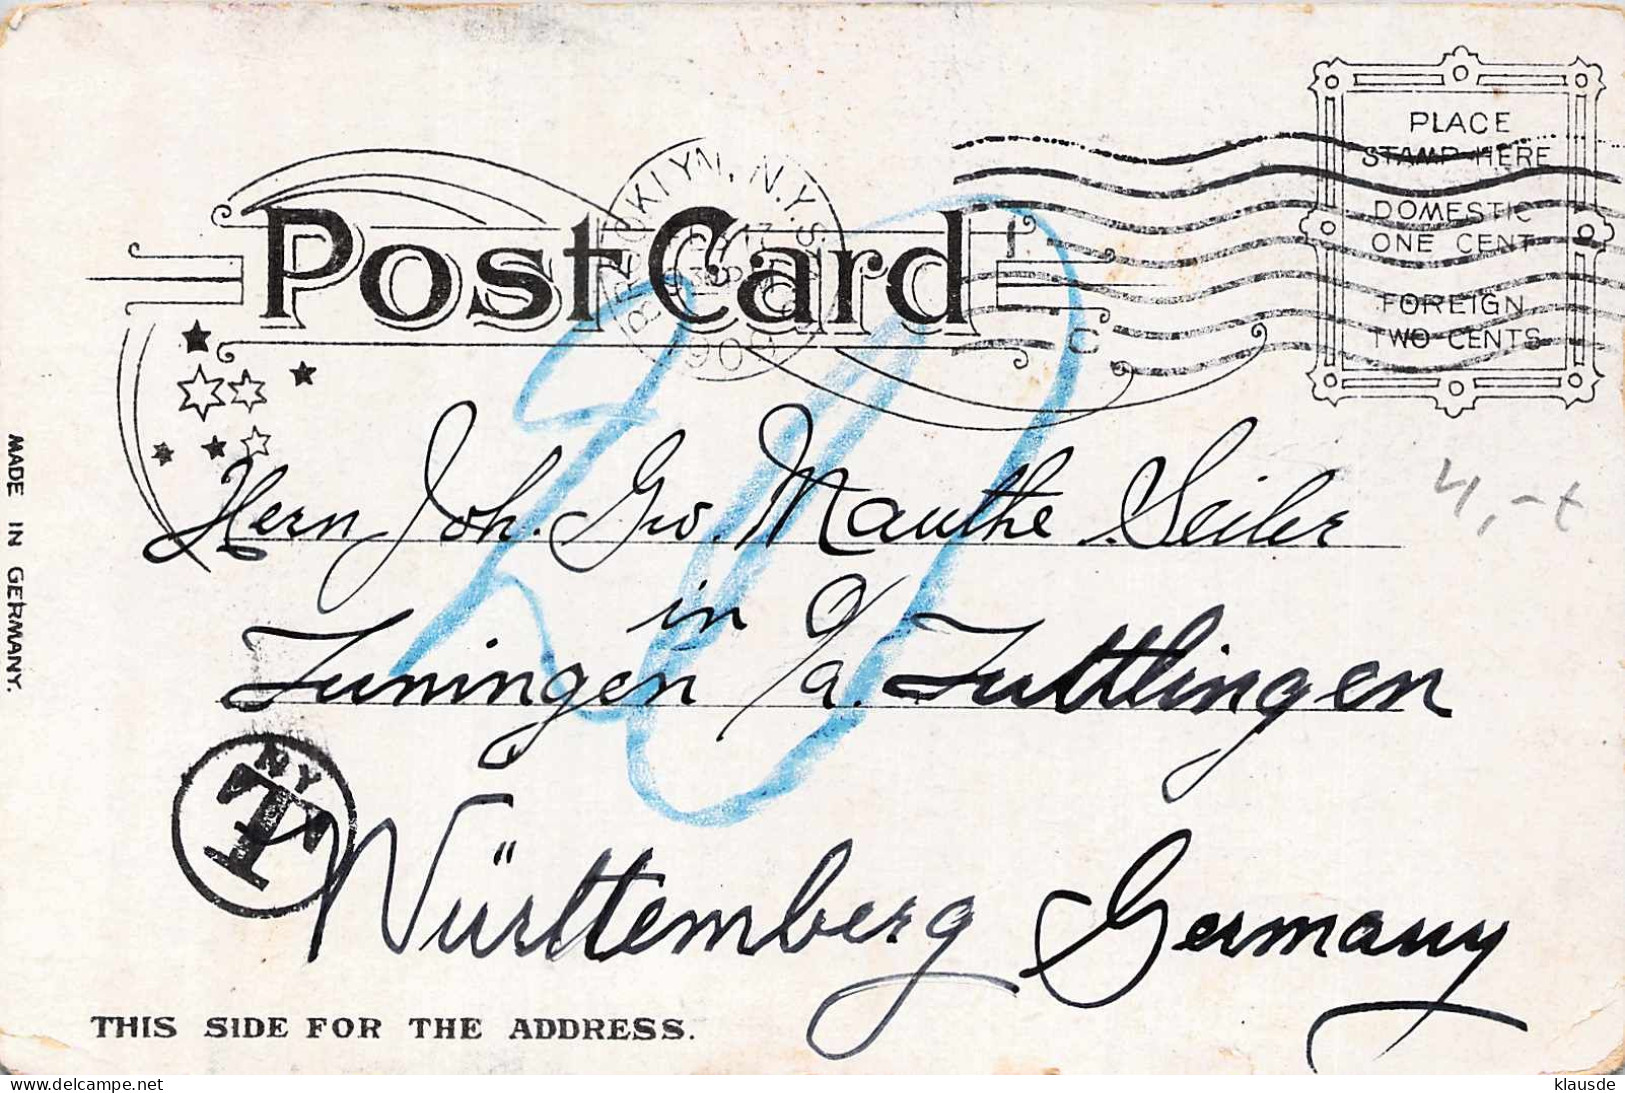 PLACE
STAMP HERE
DOMESTIC
ONE CENT
FOREIGN
TWO CENTS
BROOKLYN, N.Y.
Post Card
C
20
4,-t
MADE IN GERMANY.
Herrn Joh. Geo. Mauthe Seiler
in
Tuningen O/a. Tuttlingen
NY
T
Württemberg Germany
THIS SIDE FOR THE ADDRESS.
www.delcampe.net
klausde